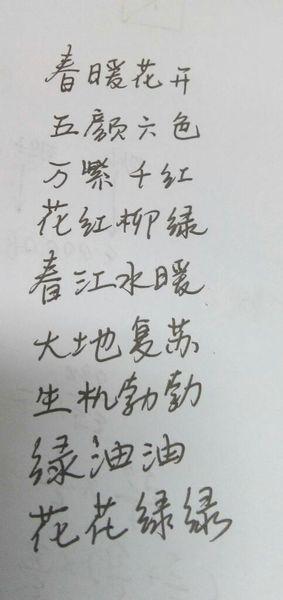 春暖花开
五颜六色
万紫千红
花红柳绿
春江水暖
大地复苏
生机勃勃
绿油油
花花绿绿